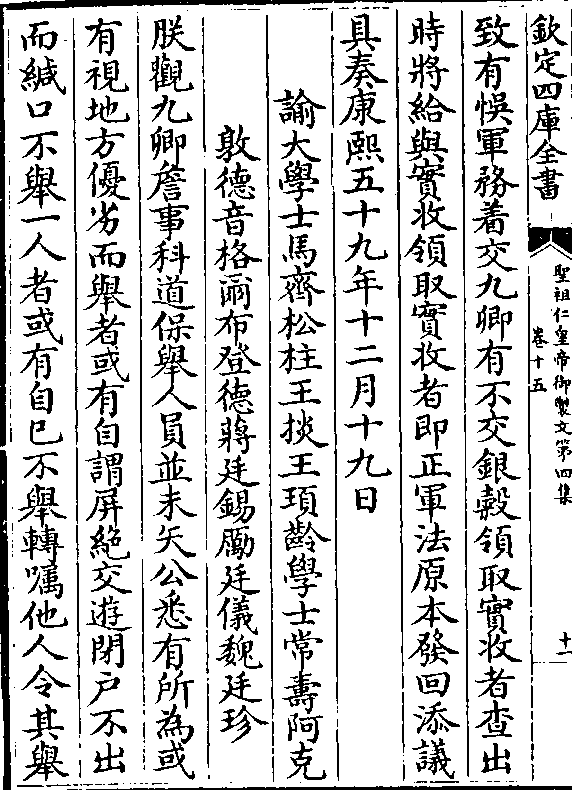 欽定四庫全書
聖祖仁皇帝御製文第四集
卷十五
十一
致有悞軍務着交九卿有不交銀穀領取實收者查出
時將給與實收領取實收者即正軍法原本發回添議
具奏康熙五十九年十二月十九日
諭大學士馬齊松柱王掞王頊齡學士常壽阿克
敦德音格爾布登德蔣廷錫勵廷儀魏廷珍
朕觀九卿詹事科道保舉人員並未矢公悉有所為或
有視地方優劣而舉者或有自謂屏絕交遊閉户不出
而緘口不舉一人者或有自已不舉轉囑他人令其舉